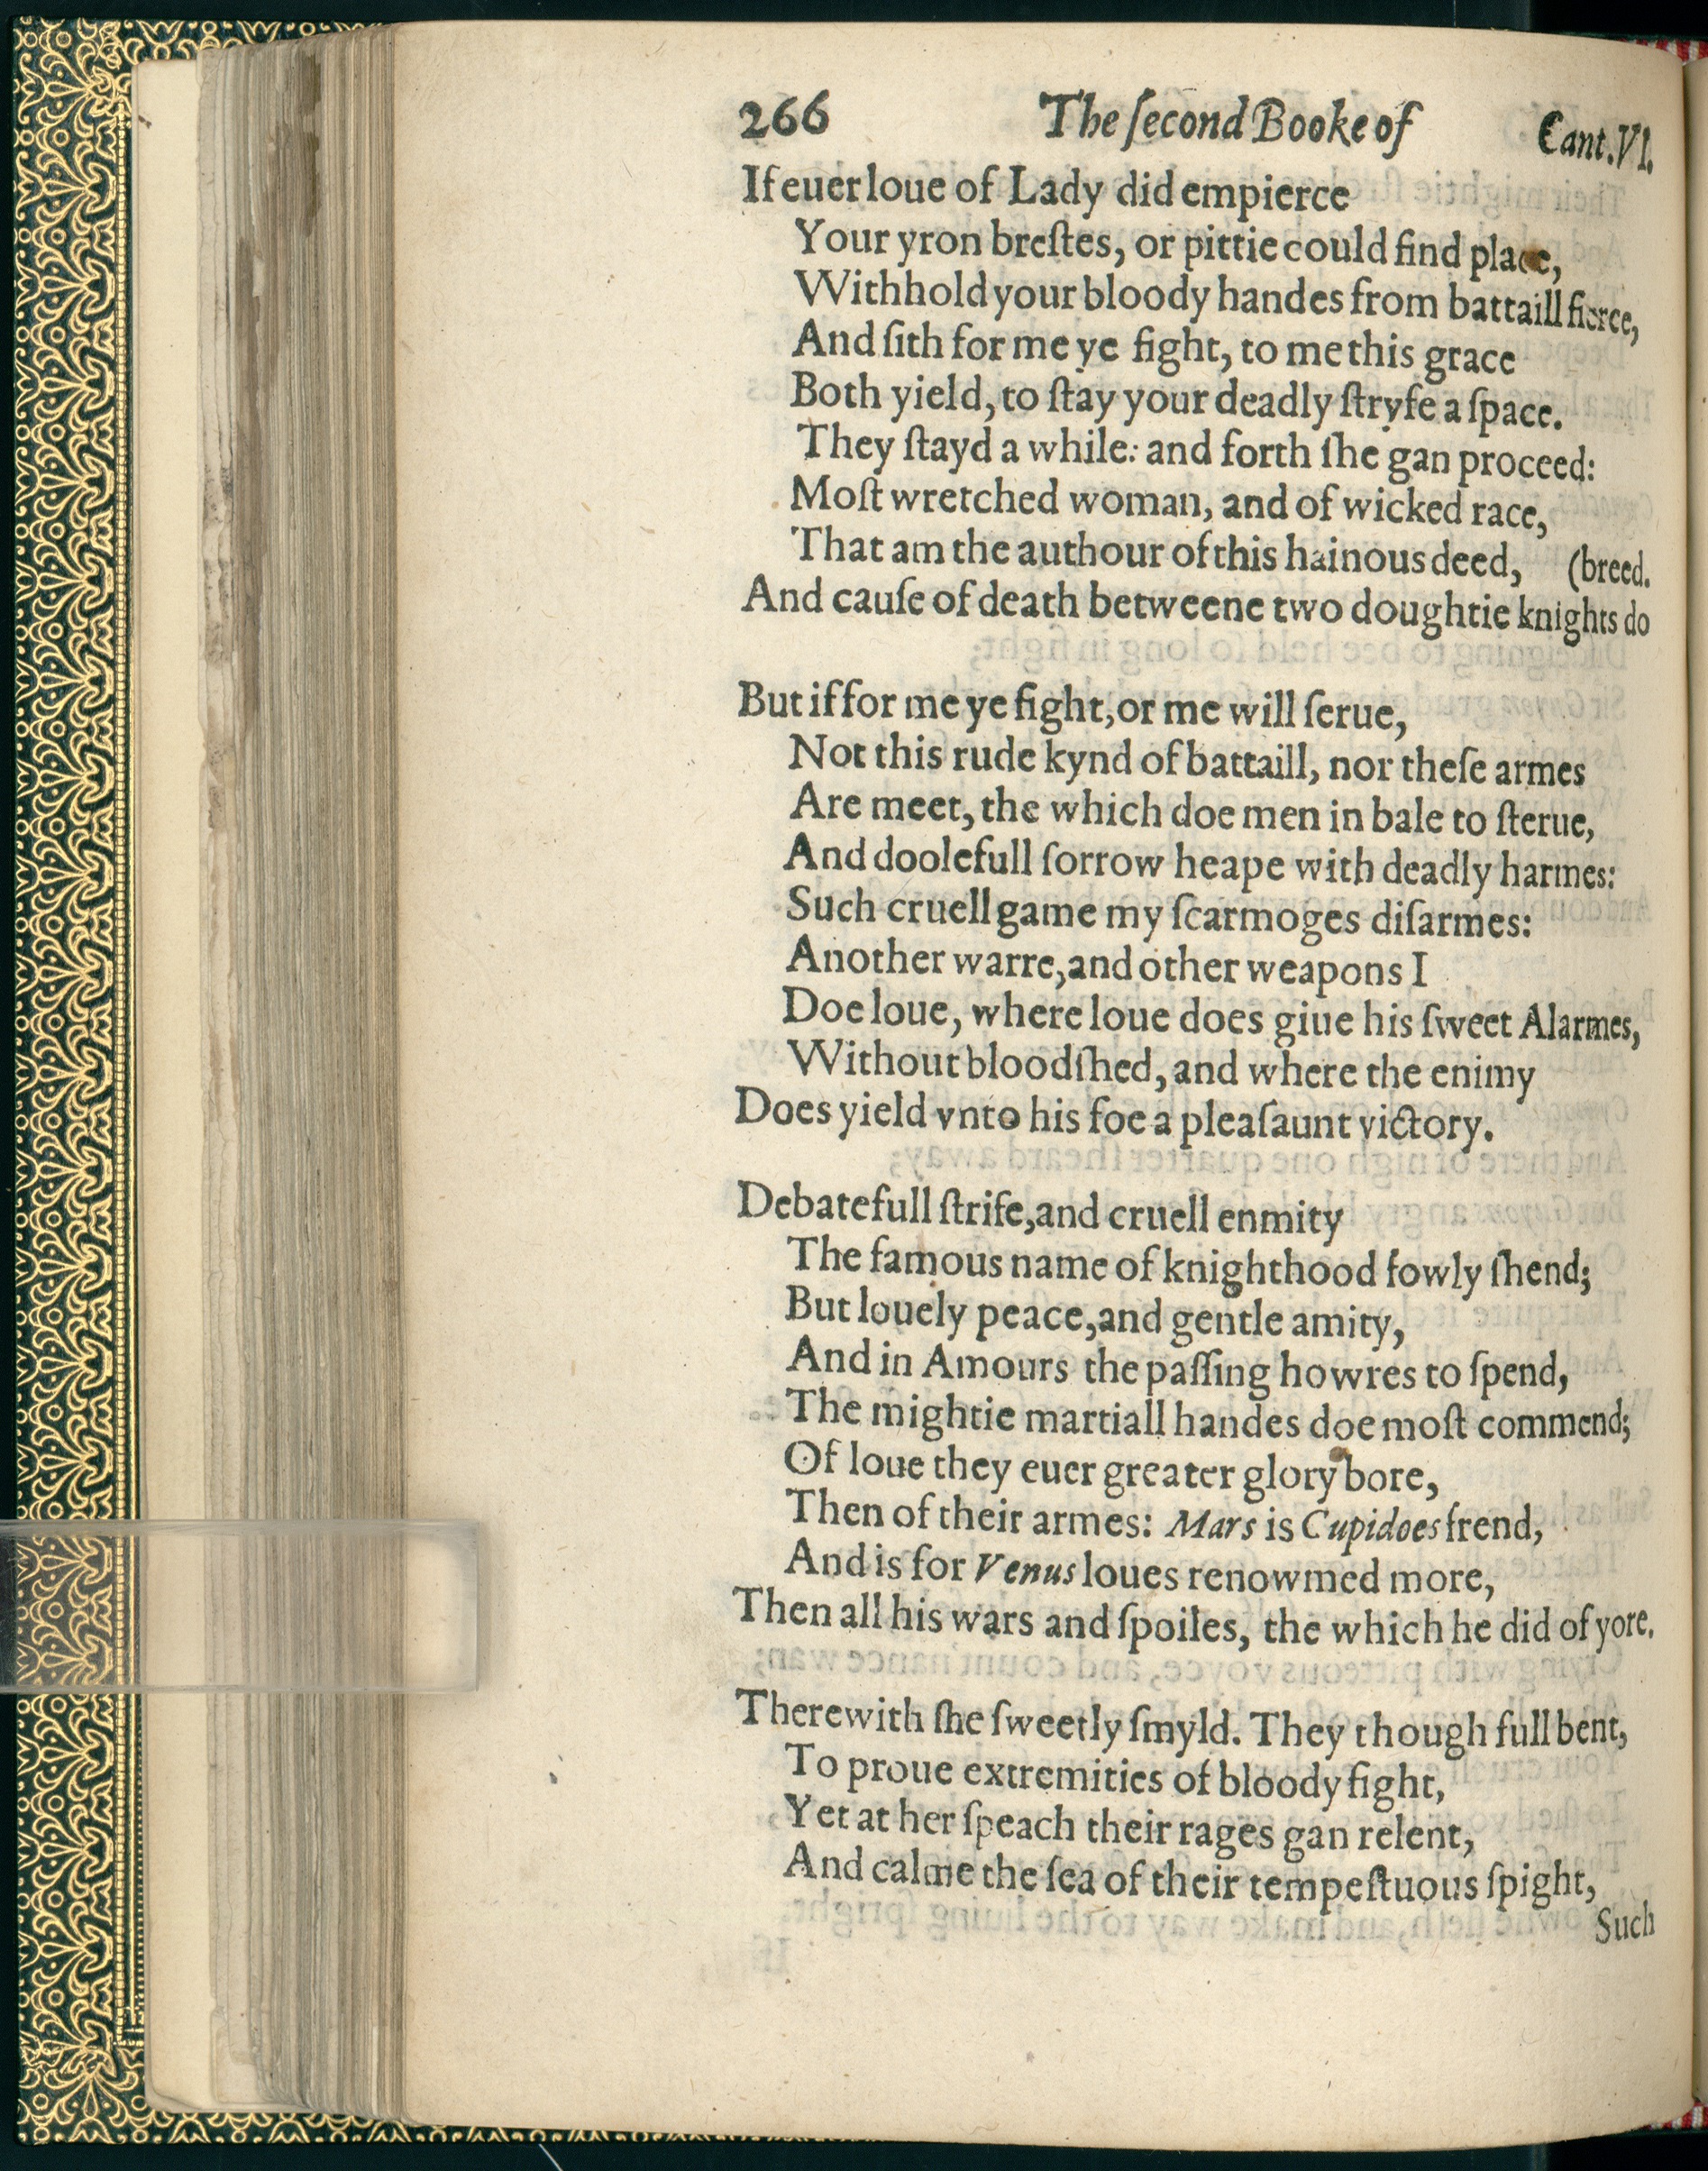 266 The ſecond Booke of Cant.VI.
If euer loue of Lady did empierce
Your yron breſtes, or pittie could find place,
Withhold your bloody handes from battaill fierce,
And ſith for me ye fight, to me this grace
Both yield, to ſtay your deadly ſtryfe a ſpace.
They ſtayd a while: and forth ſhe gan proceed:
Moſt wretched woman, and of wicked race,
That am the authour of this hainous deed, (breed.
And cauſe of death betweene two doughtie knights do
But if for me ye fight, or me will ſerue,
Not this rude kynd of battaill, nor theſe armes
Are meet, the which doe men in bale to ſterue,
And doolefull ſorrow heape with deadly harmes:
Such cruell game my ſcarmoges diſarmes:
Another warre, and other weapons I
Doe loue, where loue does giue his ſweet Alarmes,
Without bloodſhed, and where the enimy
Does yield vnto his foe a pleaſaunt victory.
Debatefull ſtrife, and cruell enmity
The famous name of knighthood fowly ſhend;
But louely peace, and gentle amity,
And in Amours the paſſing howres to ſpend,
The mightie martiall handes doe moſt commend;
Of loue they euer greater glory bore,
Then of their armes: Mars is Cupidoes frend,
And is for Venus loues renowmed more,
Then all his wars and ſpoiles, the which he did of yore.
Therewith ſhe ſweetly ſmyld. They though full bent,
To proue extremities of bloody fight,
Yet at her ſpeach their rages gan relent,
And calme the ſea of their tempeſtuous ſpight,
Such